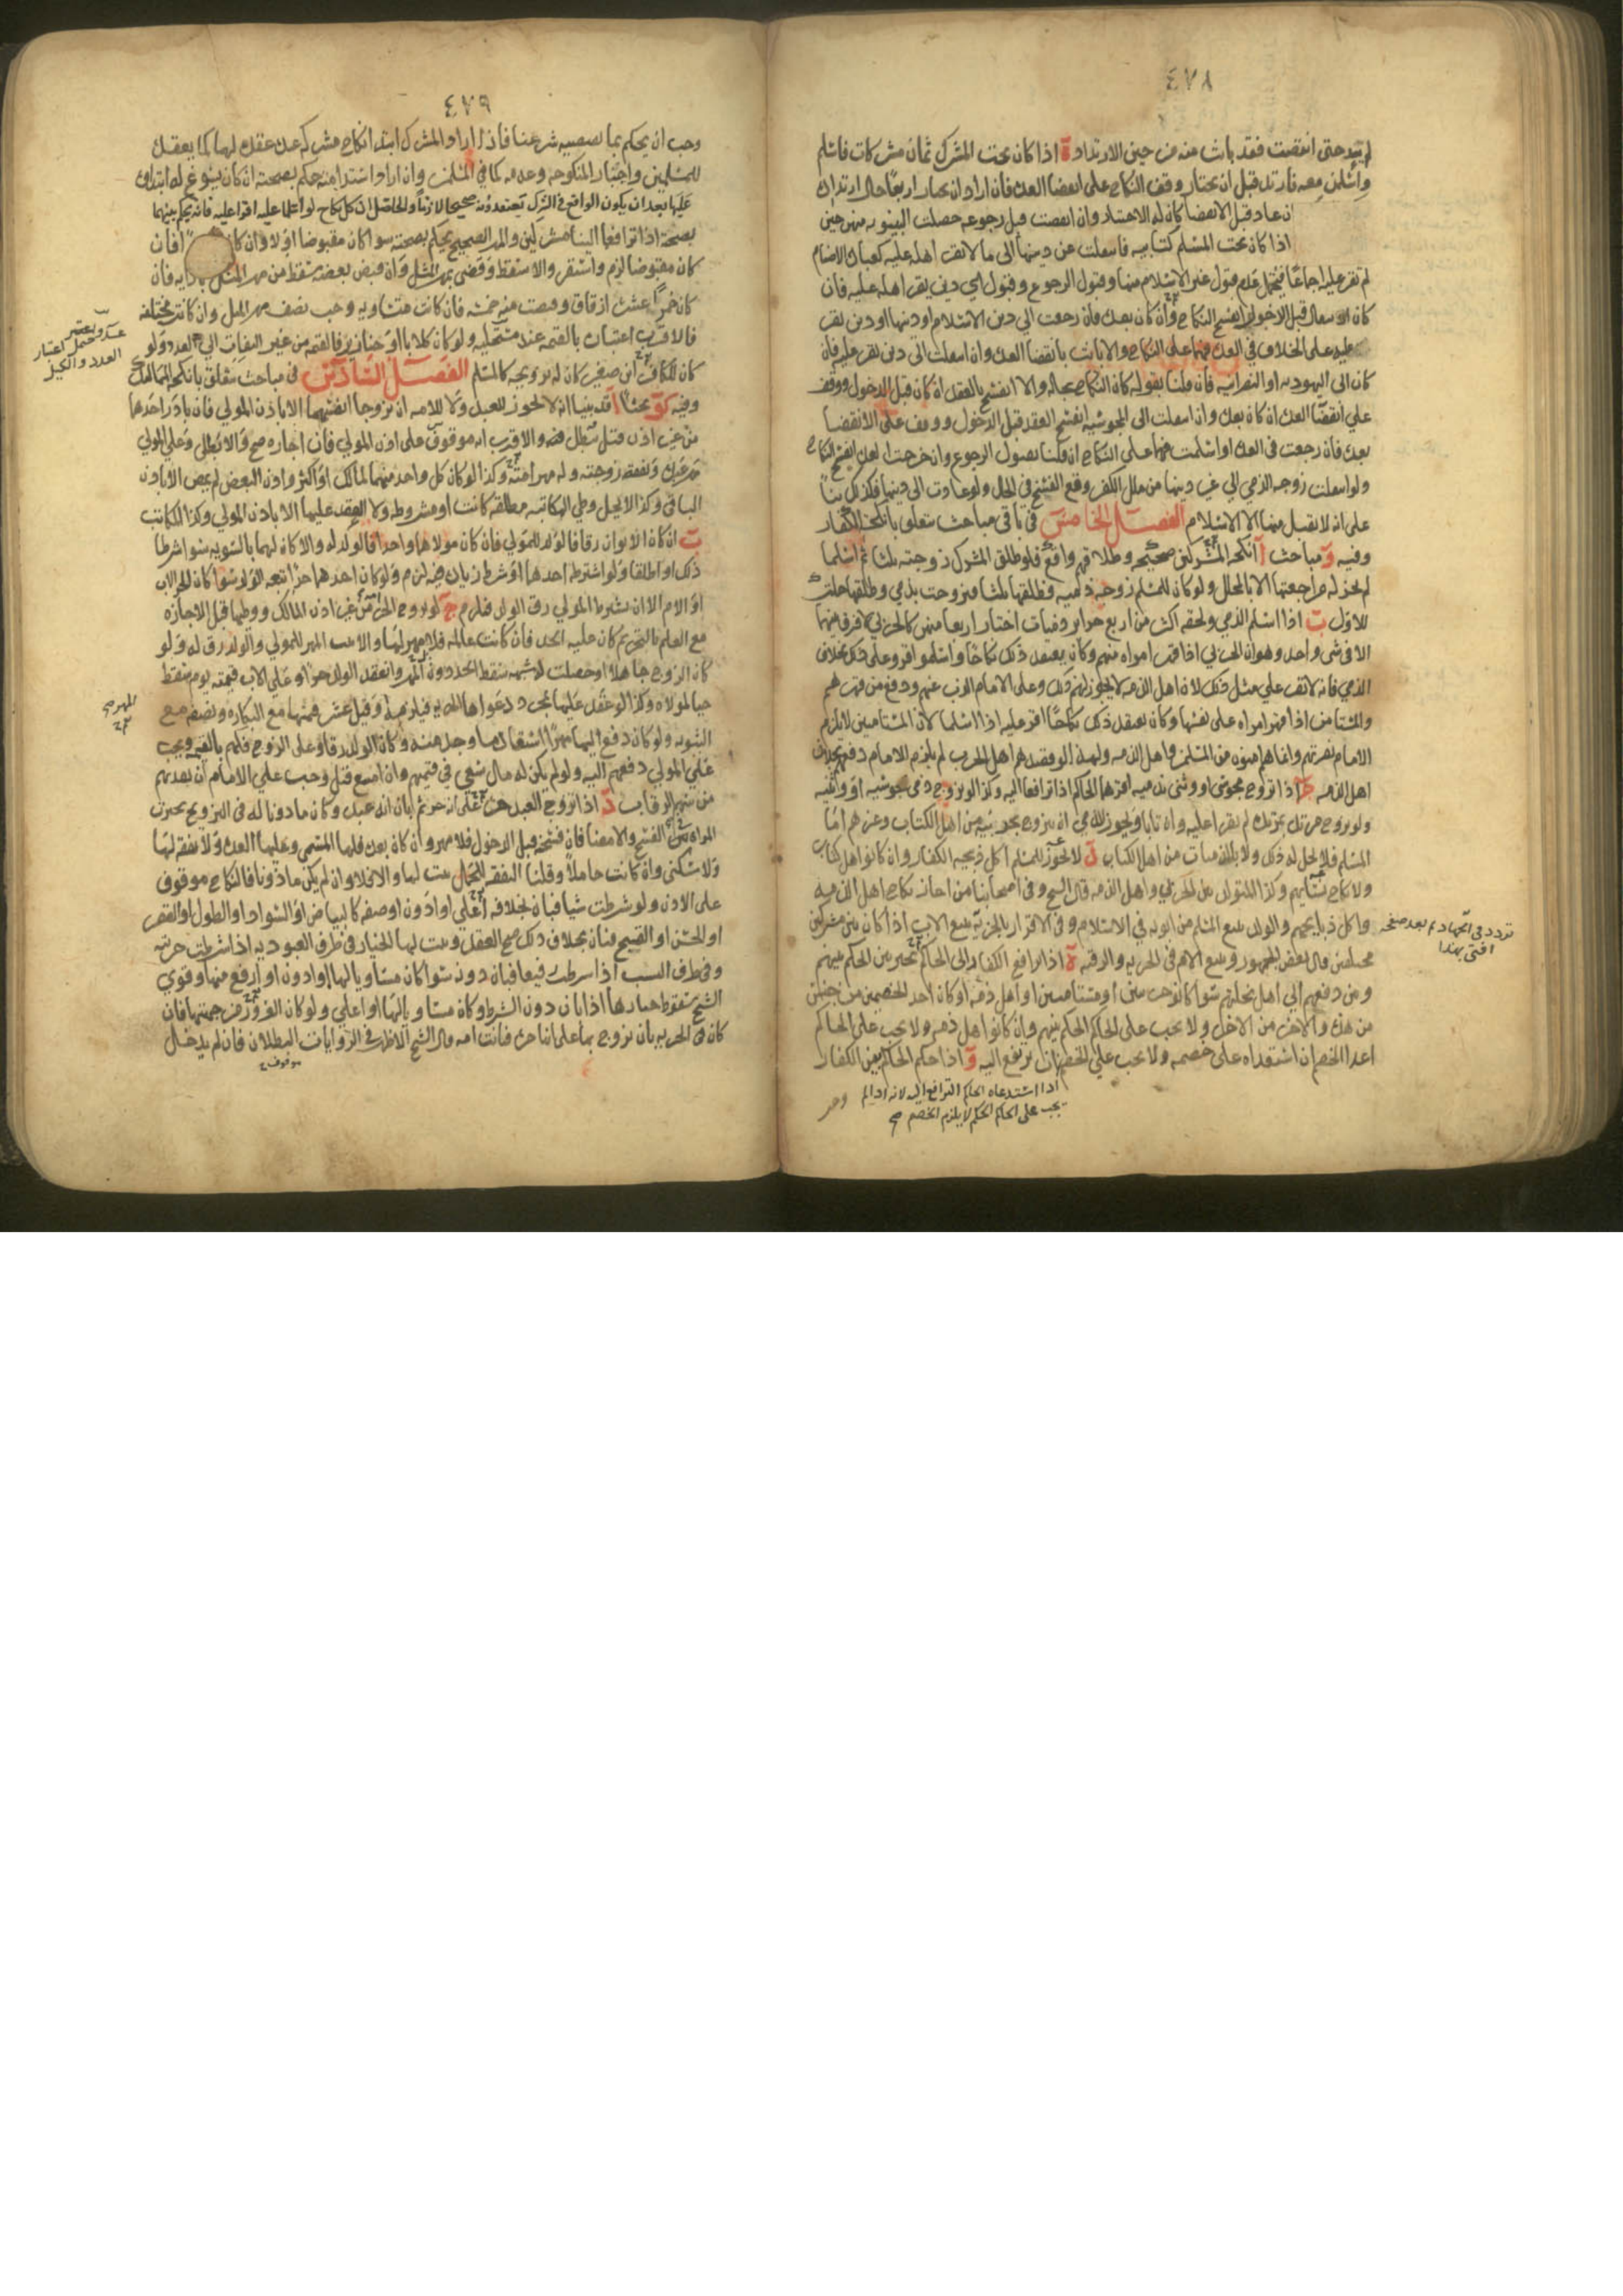 ٤٧٨
لم يتب حتى انقضت فقد بانت منه من حين الارتداد ة اذا كان تحت المشرك ثمان مشركات فاسلم
واسلمن معه فارتد قبل ان يختار وقف النكاح على انقضا العدة فان اراد ان يختار اربعا حال ارتداده
ان عاد قبل الانقضا كان له الاختيار وان انقضت قبل رجوعه حصلت البينونة من حين
اذا كان تحت المسلم كتابيه فانتقلت عن دينها الى ما لا يقر اهله عليه كعبادة الاصنام
لم تقر عليه اجماعا فيحتمل عدم قبول غير الاسلام منها وقبول الرجوع وقبول اي دين يقر اهله عليه فان
كان الانتقال قبل الدخول انفسخ النكاح وان كان بعده فان رجعت الى دين الاسلام او دينها او دين يقر
عليه على الخلاف في العدة فهما على النكاح والا بانت بانقضا العدة وان انتقلت الى دين يقر عليه فان
كان الى اليهوديه او النصرانيه فان قلنا بقوله كان النكاح بحاله والا انفسخ بالعقد ان كان قبل الدخول ووقف
على انقضا العدة ان كان بعده وان انتقلت الى المجوسيه انفسخ العقد قبل الدخول ووقف على الانقضا
بعده فان رجعت في العدة او اسلمت فهما على النكاح ان قلنا بقبول الرجوع وان خرجت العدة انفسخ النكاح
ولو انتقلت زوجه الذمي الى غير دينها من ملل الكفر وقع الفسخ في الحال ولو عادت الى دينها فكذلك بنا
على انه لا يقبل منها الا الاسلام الفصل الخامس في باقي مباحث تتعلق بانكحة الكفار
وفيه و مباحث ا انكحة المشركين صحيحه وطلاقهم واقع فلو طلق المشرك زوجته ثلثا ثم اسلما
لم يجز له مراجعتها الا بالمحلل ولو كان للمسلم زوجه ذميه فطلقها ثلثا فتزوجت بذمي وطلقها حلت
للاول ب اذا اسلم الذمي ولحقه اكثر من اربع حراير وفيات اختار اربعا منهن كالحربي لا فرق بينهما
الا في شي واحد وهو ان الحربي اذا قهر امراه منهم وكان يعتقد ذلك نكاحا واسلموا اقر وعلى ذلك بخلاف
الذمي فانه لا يقر على مثل ذلك لان اهل الذمه لا يجوز لهم ذلك وعلى الامام الذب عنهم ودفع من قهرهم
والمستامن اذا قهر امراه على نفسها وكان يعتقد ذلك نكاحا اقر عليه اذا اسلما لان المستامين لا يلزم
الامام نصرتهم وانما هم امنون من المسلمين واهل الذمه ولهذا لو قصدهم اهل الحرب لم يلزم الامام دفعهم بخلاف
اهل الذمه ج اذا تزوج مجوسي او وثني بذميه اقرهما الحاكم اذا ترافعا اليه وكذا لو تزوج ذمي مجوسيه او وثنيه
ولو تزوج مرتد بمرتده لم يقرا عليه وان تابا ويجوز للذمي ان يتزوج بحربيه من اهل الكتاب وغيرهم اما
المسلم فلا يحل له ذلك ولا بالذميات من اهل الكتاب د لا يجوز للمسلم اكل ذبيحه الكفار وان كانوا اهل كتاب
ولا نكاح نسايهم وكذا المتولد بين الحربي واهل الذمه قال الشيخ وفي اصحابنا من اجاز نكاح اهل الذمه
واكل ذبايحهم والولد يتبع المسلم من ابويه في الاسلام وفي الاقرار بالجزيه يتبع الاب اذا كان بين مشركين
مختلفين قال بعض الجمهور ويتبع الام في الحريه والرقيه ة اذا ترافع الكفار الى الحاكم تخير بين الحكم بينهم
ومن دفعهم الى اهل نحلتهم سوا كانوا حربيين او مستامنين او اهل ذمه او كان احد الخصمين من جنس
من هذه والاخر من الاخر ولا يجب على الحاكم الحكم بينهم وان كانوا اهل ذمه ولا يجب على الحاكم
اعدا الخصم ان استعداه على خصمه ولا يجب على الخصم ان يرتفع اليه و اذا حكم الحاكم بين الكفار
اذا استدعاه الحاكم الترافع اليه لانه اذا لم
يجب على الحاكم الحكم لا يلزم الخصم صح
وجب
تردد في الجهاد ثم بعد صفحه
افتى بهذا
٤٧٩
وجب ان يحكم بما يقتضيه شرعنا فاذا اراد المشرك ابتدا نكاح مشركه عنده عقد لهما كما يعقد
للمسلمين واختبار المنكوحه وعدمه كما في المسلمين وان اراد استدامته حكم بصحته ان كان يسوغ له ابتداؤه
عليها بعد ان يكون الواقع في الشرك تعتقدونه صحيحا لازما والحاصل ان كل نكاح لو اسلما عليه اقرا عليه فانه يحكم بينهما
بصحته اذا ترافعا الينا مشركين والمهر الصحيح يحكم بصحته سوا كان مقبوضا اولا وان كان فاسدا فان
كان مقبوضا لزم واستقر والا سقط وقضى بمهر المثل وان قبض بعضه سقط من مهر المثل بازايه فان
كان خمرا عشرة ازقاق وقبضت منه خمسه فان كانت متساويه وجب نصف مهر المثل وان كانت مختلفه
فالاقرب اعتباره بالقيمه عند مستحليه ولو كان كلابا او خنازير فالقيمه من غير التفات الى العدد ولو
كان للكافر ابن صغير كان له تزويجه كالمسلم الفصل السادس في مباحث تتعلق بانكحة المماليك
وفيه كو بحثا ا قد بينا انه لا يجوز للعبد ولا للامه ان تزوجا انفسهما الا باذن المولى فان بادر احدهما
من غير اذن قيل يبطل منه والاقرب انه موقوف على اذن المولى فان اجازه صح والا بطل وعلى المولى
مهر عبده ونفقه زوجته وله مهر امته وكذا لو كان كل واحد منهما لمالك او اكثر واذن البعض لم يمض الا باذن
الباقي وكذا لا يحل وطي المكاتبه مطلقه كانت او مشروطه ولا العقد عليها الا باذن المولى وكذا المكاتب
ب ان كان الابوان رقا فالولد للمولى فان كان مولاهما واحدا فالولد له والا كان لهما بالسويه سوا شرطا
ذلك او اطلقا ولو اشترطه احدهما او شرط زياده حصه لزم ولو كان احدهما حرا تبعه الولد سوا كان الحر الاب
او الام الا ان يشترط المولى رق الولد فيلزم ج لو تزوج الحر امه من غير اذن المالك ووطيها قبل الاجازه
مع العلم بالتحريم كان عليه الحد فان كانت عالمه فلا مهر لها والا ثبت المهر للمولى والولد رق له ولو
كان الزوج جاهلا او حصلت له شبهه سقط الحد دون المهر وانعقد الولد حرا وعلى الاب قيمته يوم سقط
حيا لمولاه وكذا لو عقد عليها بمجرد دعواها الحريه فيلزمه قيل عشر قيمتها مع البكاره ونصفه مع
الثيوبه ولو كان دفع اليها مهرا استعاد ما وجد منه وكان الولد رقا وعلى الزوج فكهم بالقيمه ويجب
على المولى دفعهم اليه ولو لم يكن له مال سعى في قيمتهم وان امتنع قيل وجب على الامام ان يفديهم
من سهم الرقاب د اذا تزوج العبد حره على انه حر ثم بان انه عبد وكان ماذونا له في التزويج تخيرت
المراه بين الفسخ والامضا فان فسخته قبل الدخول فلا مهر وان كان بعده فلها المسمى وعليها العده ولا نفقه لها
ولا سكنى وان كانت حاملا وقلنا النفقه للحمل ثبت لها والا فلا وان لم يكن ماذونا فالنكاح موقوف
على الاذن ولو شرطت شيا فبان بخلافه اعلى او ادون او صفه كالبياض او السواد او الطول او القصر
او الحسن او القبيح فبان بخلاف ذلك صح العقد وثبت لها الخيار في طرف العبوديه اذا شرطت حريته
وفي طرف النسب اذا شرطت رفيعا فبان دونه سوا كان مساويا لها او ادون او ارفع منها وقوي
الشيخ سقوط خيارها اذا بان دون الشرط وكان مساويا لها او اعلى ولو كان الغرور من جهتها فان
كان في الحريه بان تزوج بها على انها حره فبانت امه قال الشيخ الاظهر في الروايات البطلان فان لم يدخل
موقوف
العدد والكيل
المهر صح